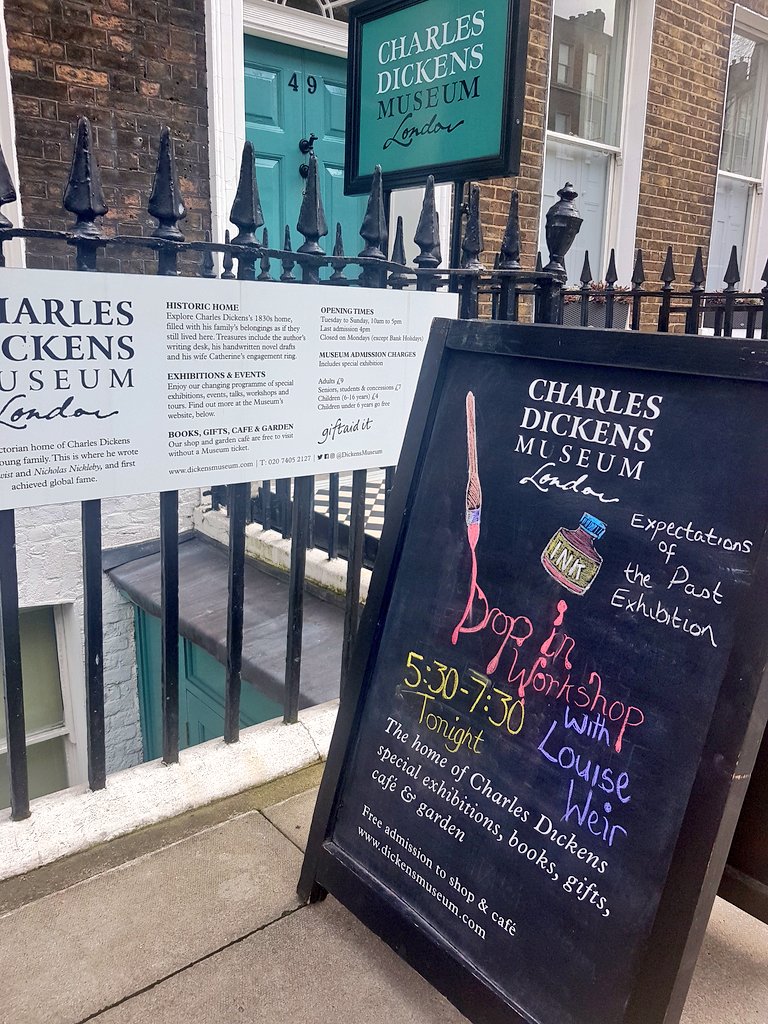 49
CHARLES
DICKENS
MUSEUM
London
HARLES
CKENS
USEUM
London
ctorian home of Charles Dickens
oung family. This is where he wrote
wist and Nicholas Nickleby, and first
achieved global fame.
HISTORIC HOME
Explore Charles Dickens's 1830s home,
filled with his family's belongings as if they
still lived here. Treasures include the author's
writing desk, his handwritten novel drafts
and his wife Catherine's engagement ring.
EXHIBITIONS & EVENTS
Enjoy our changing programme of special
exhibitions, events, talks, workshops and
tours. Find out more at the Museum's
website, below.
BOOKS, GIFTS, CAFE & GARDEN
Our shop and garden café are free to visit
without a Museum ticket.
www.dickensmuseum.com | T: 020 7405 2127 | @DickensMuseum
OPENING TIMES
Tuesday to Sunday, 10am to 5pm
Last admission 4pm
Closed on Mondays (except Bank Holidays)
MUSEUM ADMISSION CHARGES
Includes special exhibition
Adults £9
Seniors, students & concessions £7
Children (6-16 years) £4
Children under 6 years go free
giftaid it
CHARLES
DICKENS
MUSEUM
London
INK
Expectations
of
the Past
Exhibition
Drop in
Workshop
5:30-7:30
Tonight
with
Louise
Weir
The home of Charles Dickens
special exhibitions, books, gifts,
café & garden
Free admission to shop & café
www.dickensmuseum.com